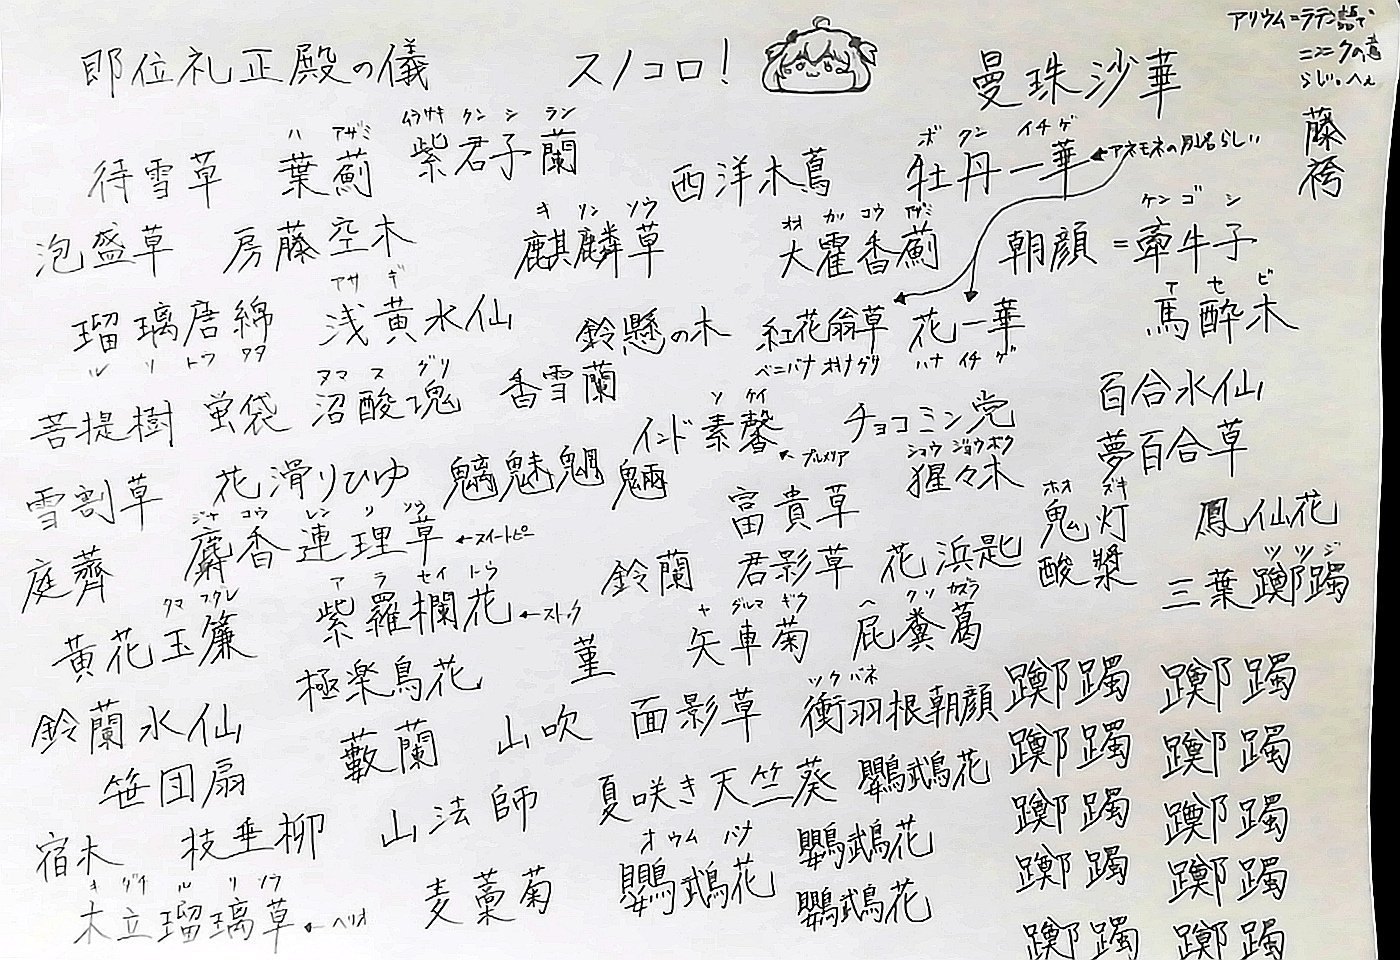 アリウム=ラテン語で
ニンニクの意
らしい。へぇ
即位礼正殿の儀 スノコロ! 曼珠沙華
藤袴
ハ アザミ
ムラサキ クン シ ラン
ボ タン イチゲ
待雪草 葉薊 紫君子蘭 西洋木蔦 牡丹一華 ←アネモネの別名らしい
キ リン ソウ
オオ カッ コウ アザミ
ケン ゴ シ
泡盛草 房藤空木 麒麟草 大霍香薊 朝顔=牽牛子
アサ ギ
ア セ ビ
瑠璃唐綿 浅黄水仙 鈴懸の木 紅花翁草 花一華 馬酔木
ル リ トウ ワタ
ベニバナ オキナグサ ハナ イチ ゲ
ヌマ ス グリ
菩提樹 蛍袋 沼酸塊 香雪蘭 百合水仙
ソ ケイ
インド素馨 ←プルメリア チョコミン党 夢百合草
ショウ ジョウ ボク
雪割草 花滑りひゆ 魑魅魍魎 富貴草 猩々木
ジャ コウ レン リ ソウ
ホオ ズキ
庭薺 麝香連理草 ←スイートピー 鈴蘭 君影草 花浜匙 鬼灯 鳳仙花
酸漿
ツツジ
三葉躑躅
タマ スダレ
ア ラ セイ トウ
ヤ グルマ ギク
ヘ クソ カズラ
黄花玉簾 紫羅欄花 ←ストック 菫 矢車菊 屁糞葛
ツク バネ
鈴蘭水仙 極楽鳥花 山吹 面影草 衝羽根朝顔 躑躅 躑躅
笹団扇 藪蘭 夏咲き天竺葵 鸚鵡花 躑躅 躑躅
宿木 枝垂柳 山法師 鸚鵡花 躑躅 躑躅
オウム バナ
キ ダチ ル リ ソウ
木立瑠璃草 ←ヘリオ 麦藁菊 鸚鵡花 鸚鵡花 躑躅 躑躅
躑躅 躑躅